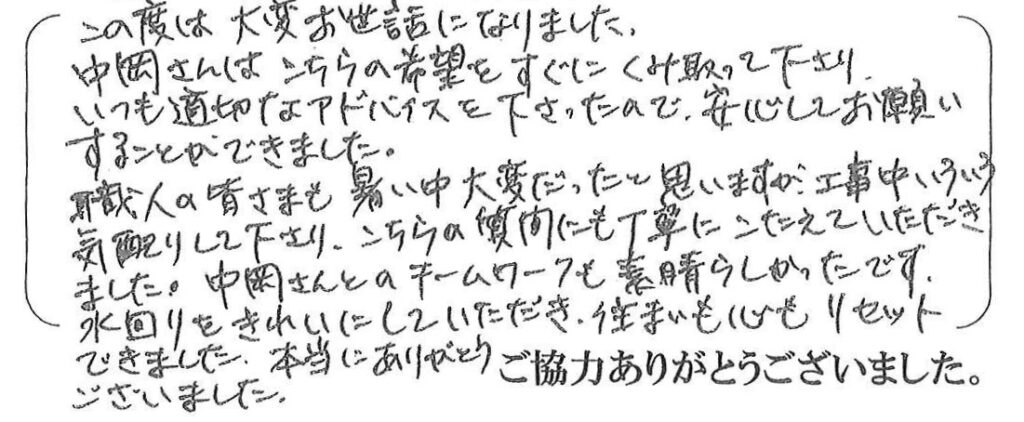 この度は大変お世話になりました。
中岡さんはこちらの希望をすぐにくみ取って下さり、
いつも適切なアドバイスを下さったので、安心してお願い
することができました。
職人の皆さまも暑い中大変だったと思いますが、工事中いろいろ
気配りして下さり、こちらの質問にも丁寧にこたえていただき
ました。中岡さんとのチームワークも素晴らしかったです。
水回りをきれいにしていただき、住まいも心もリセット
できました。本当にありがとう
ございました。
ご協力ありがとうございました。